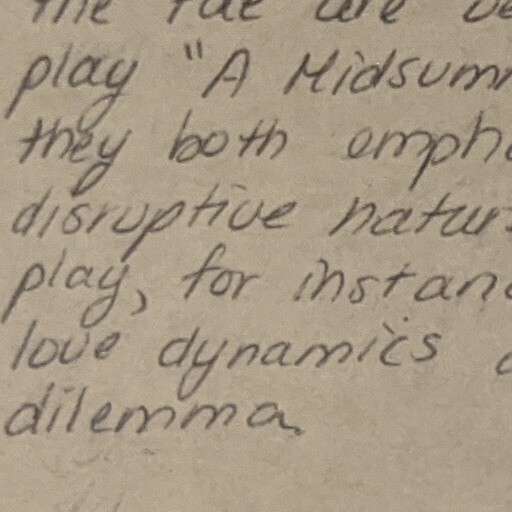 the fae are be
play "A Midsumm
they both empha
disruptive natur
play, for instanc
love dynamics
dilemma.